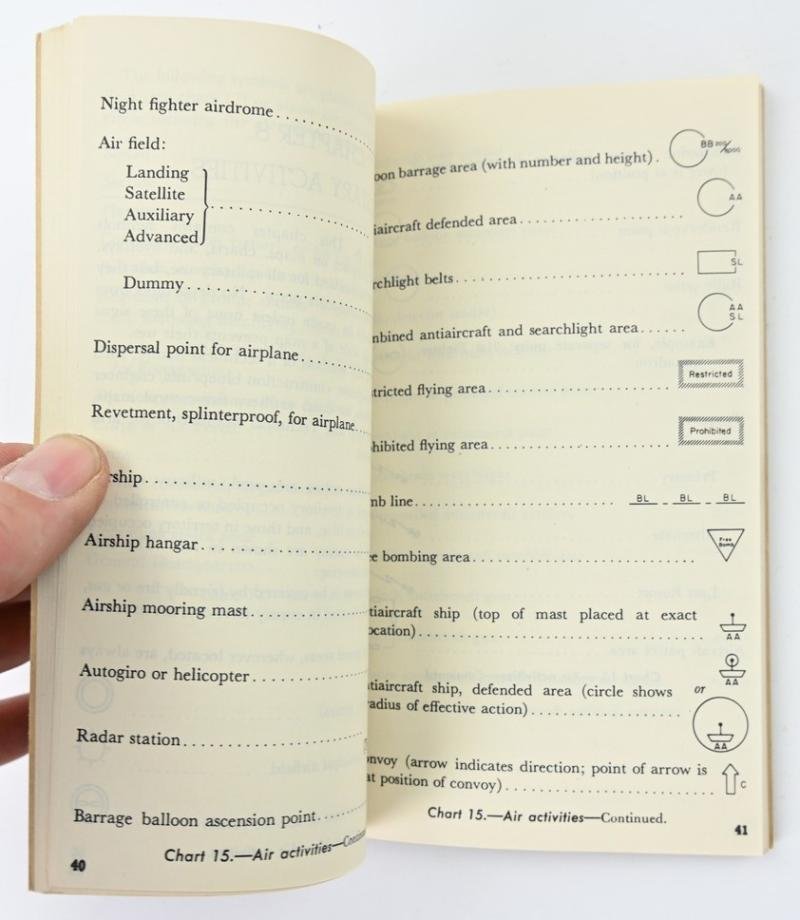 Night fighter airdrome
Air field:
Landing
Satellite
Auxiliary
Advanced
Dummy
Dispersal point for airplane
Revetment, splinterproof, for airplane
rship
Airship hangar
Airship mooring mast
Autogiro or helicopter
Radar station
Barrage balloon ascension point
Chart 15.—Air activities—Contin
40
oon barrage area (with number and height). BB
iaircraft defended area AA
rchlight belts SL
mbined antiaircraft and searchlight area AA SL
tricted flying area Restricted
hibited flying area Prohibited
mb line BL BL BL
e bombing area Free Bomb.
tiaircraft ship (top of mast placed at exact
ocation) AA
AA
tiaircraft ship, defended area (circle shows or
adius of effective action) AA
nvoy (arrow indicates direction; point of arrow is
at position of convoy) C
Chart 15.—Air activities—Continued.
41